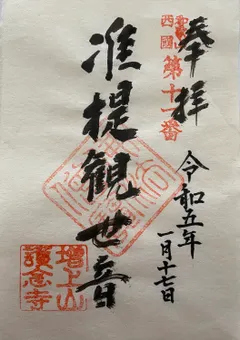 奉拝
西國
第十一番
准提観世音
令和五年
一月十七日
增上山
護念寺